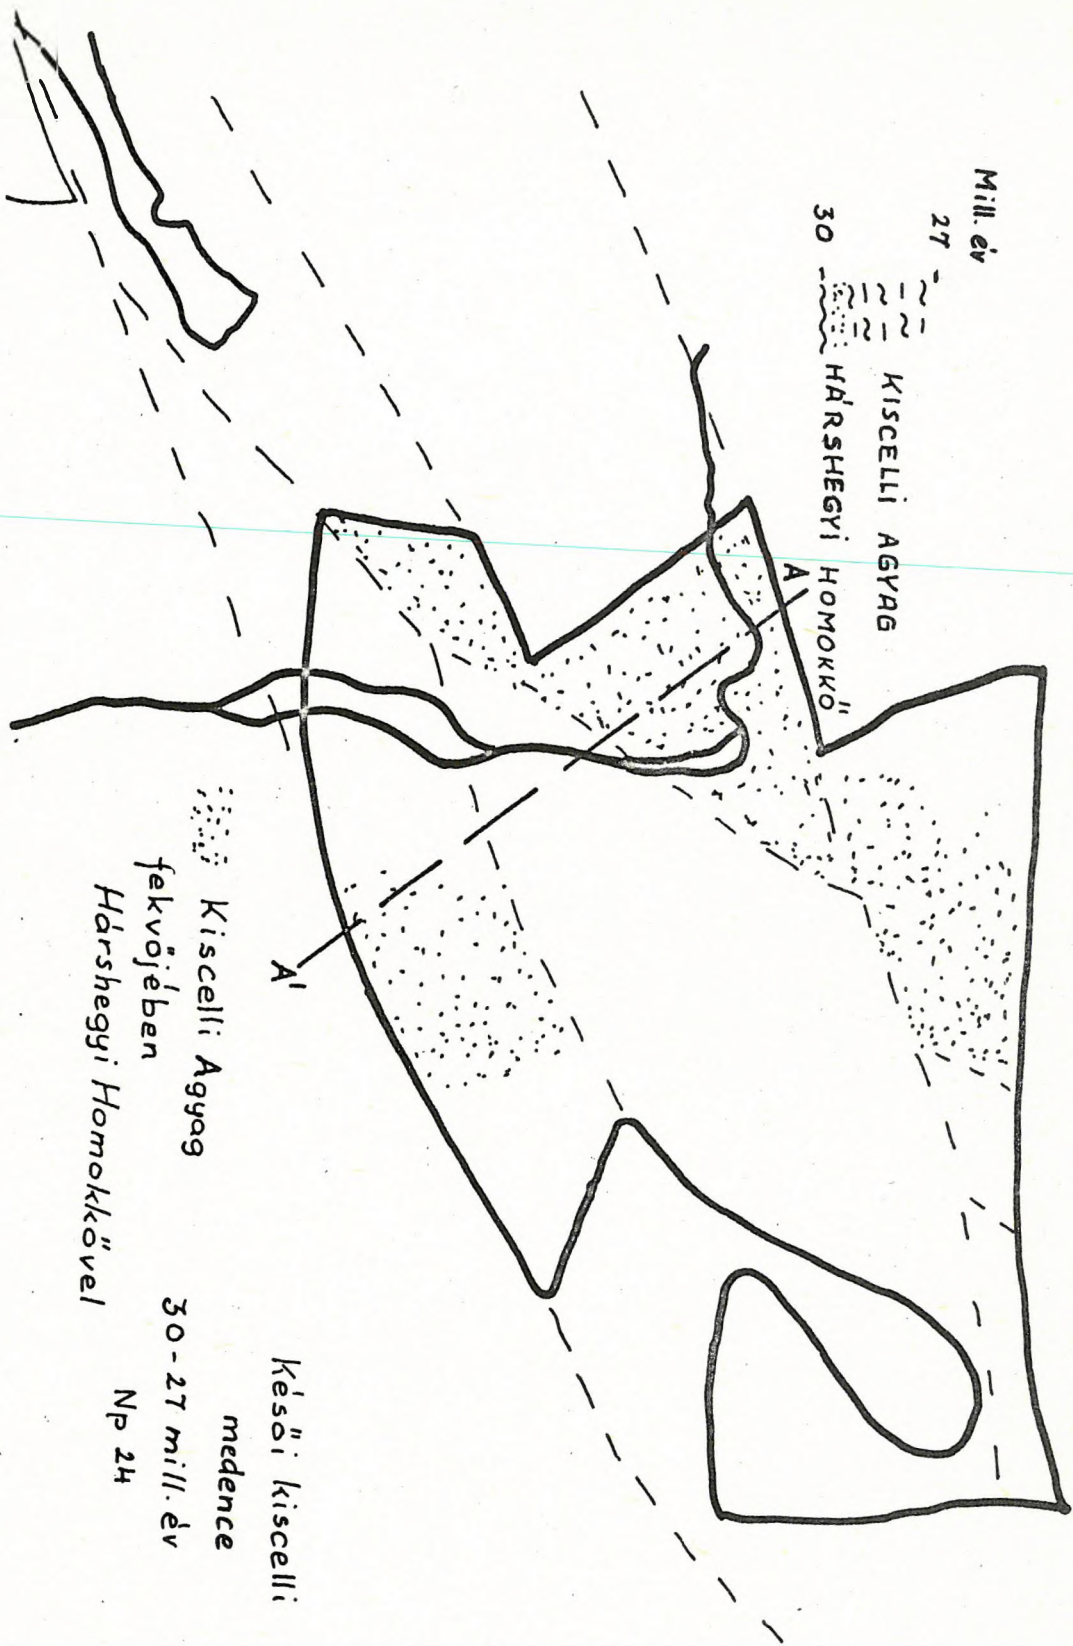 Mill. év
27
KISCELLI AGYAG
30 HÁRSHEGYI HOMOKKŐ
A
A'
Kiscelli Agyag
fekvőjében
Hárshegyi Homokkővel
Késői kiscelli
medence
30-27 mill. év
Np 24